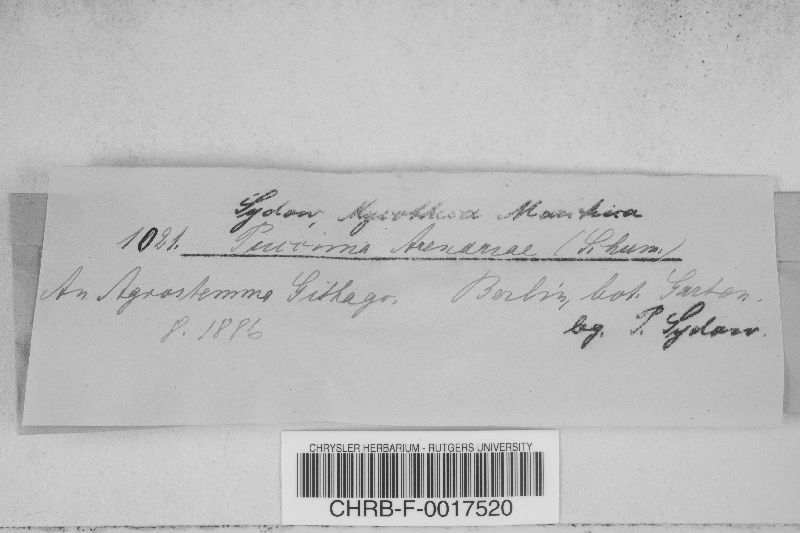 Sydow, Mycotheca Marchica
1021. Puccinia Arenariae (Schum.)
An Agrostemma Githago. Berlin, bot. Garten.
8. 1886 leg. P. Sydow.
CHRYSLER HERBARIUM - RUTGERS UNIVERSITY
CHRB-F-0017520